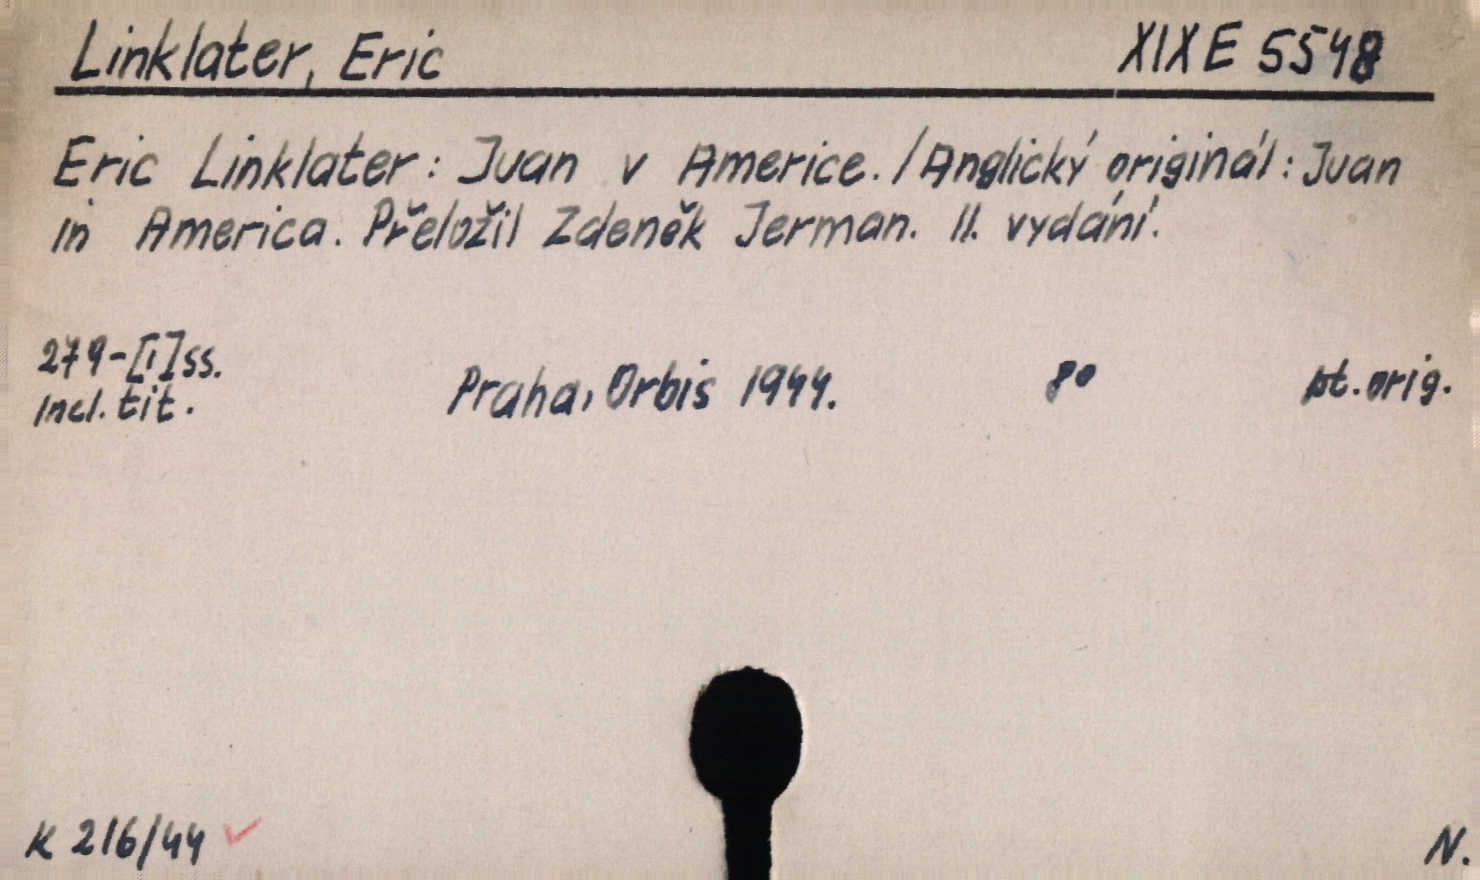 Linklater, Eric XIX E 5548
Eric Linklater: Juan v Americe. / Anglický originál: Juan
in America. Přeložil Zdeněk Jerman. II. vydání.
279-[1] ss.
incl. tit.
Praha, Orbis 1944. 8° pt. orig.
K 216/44
N.